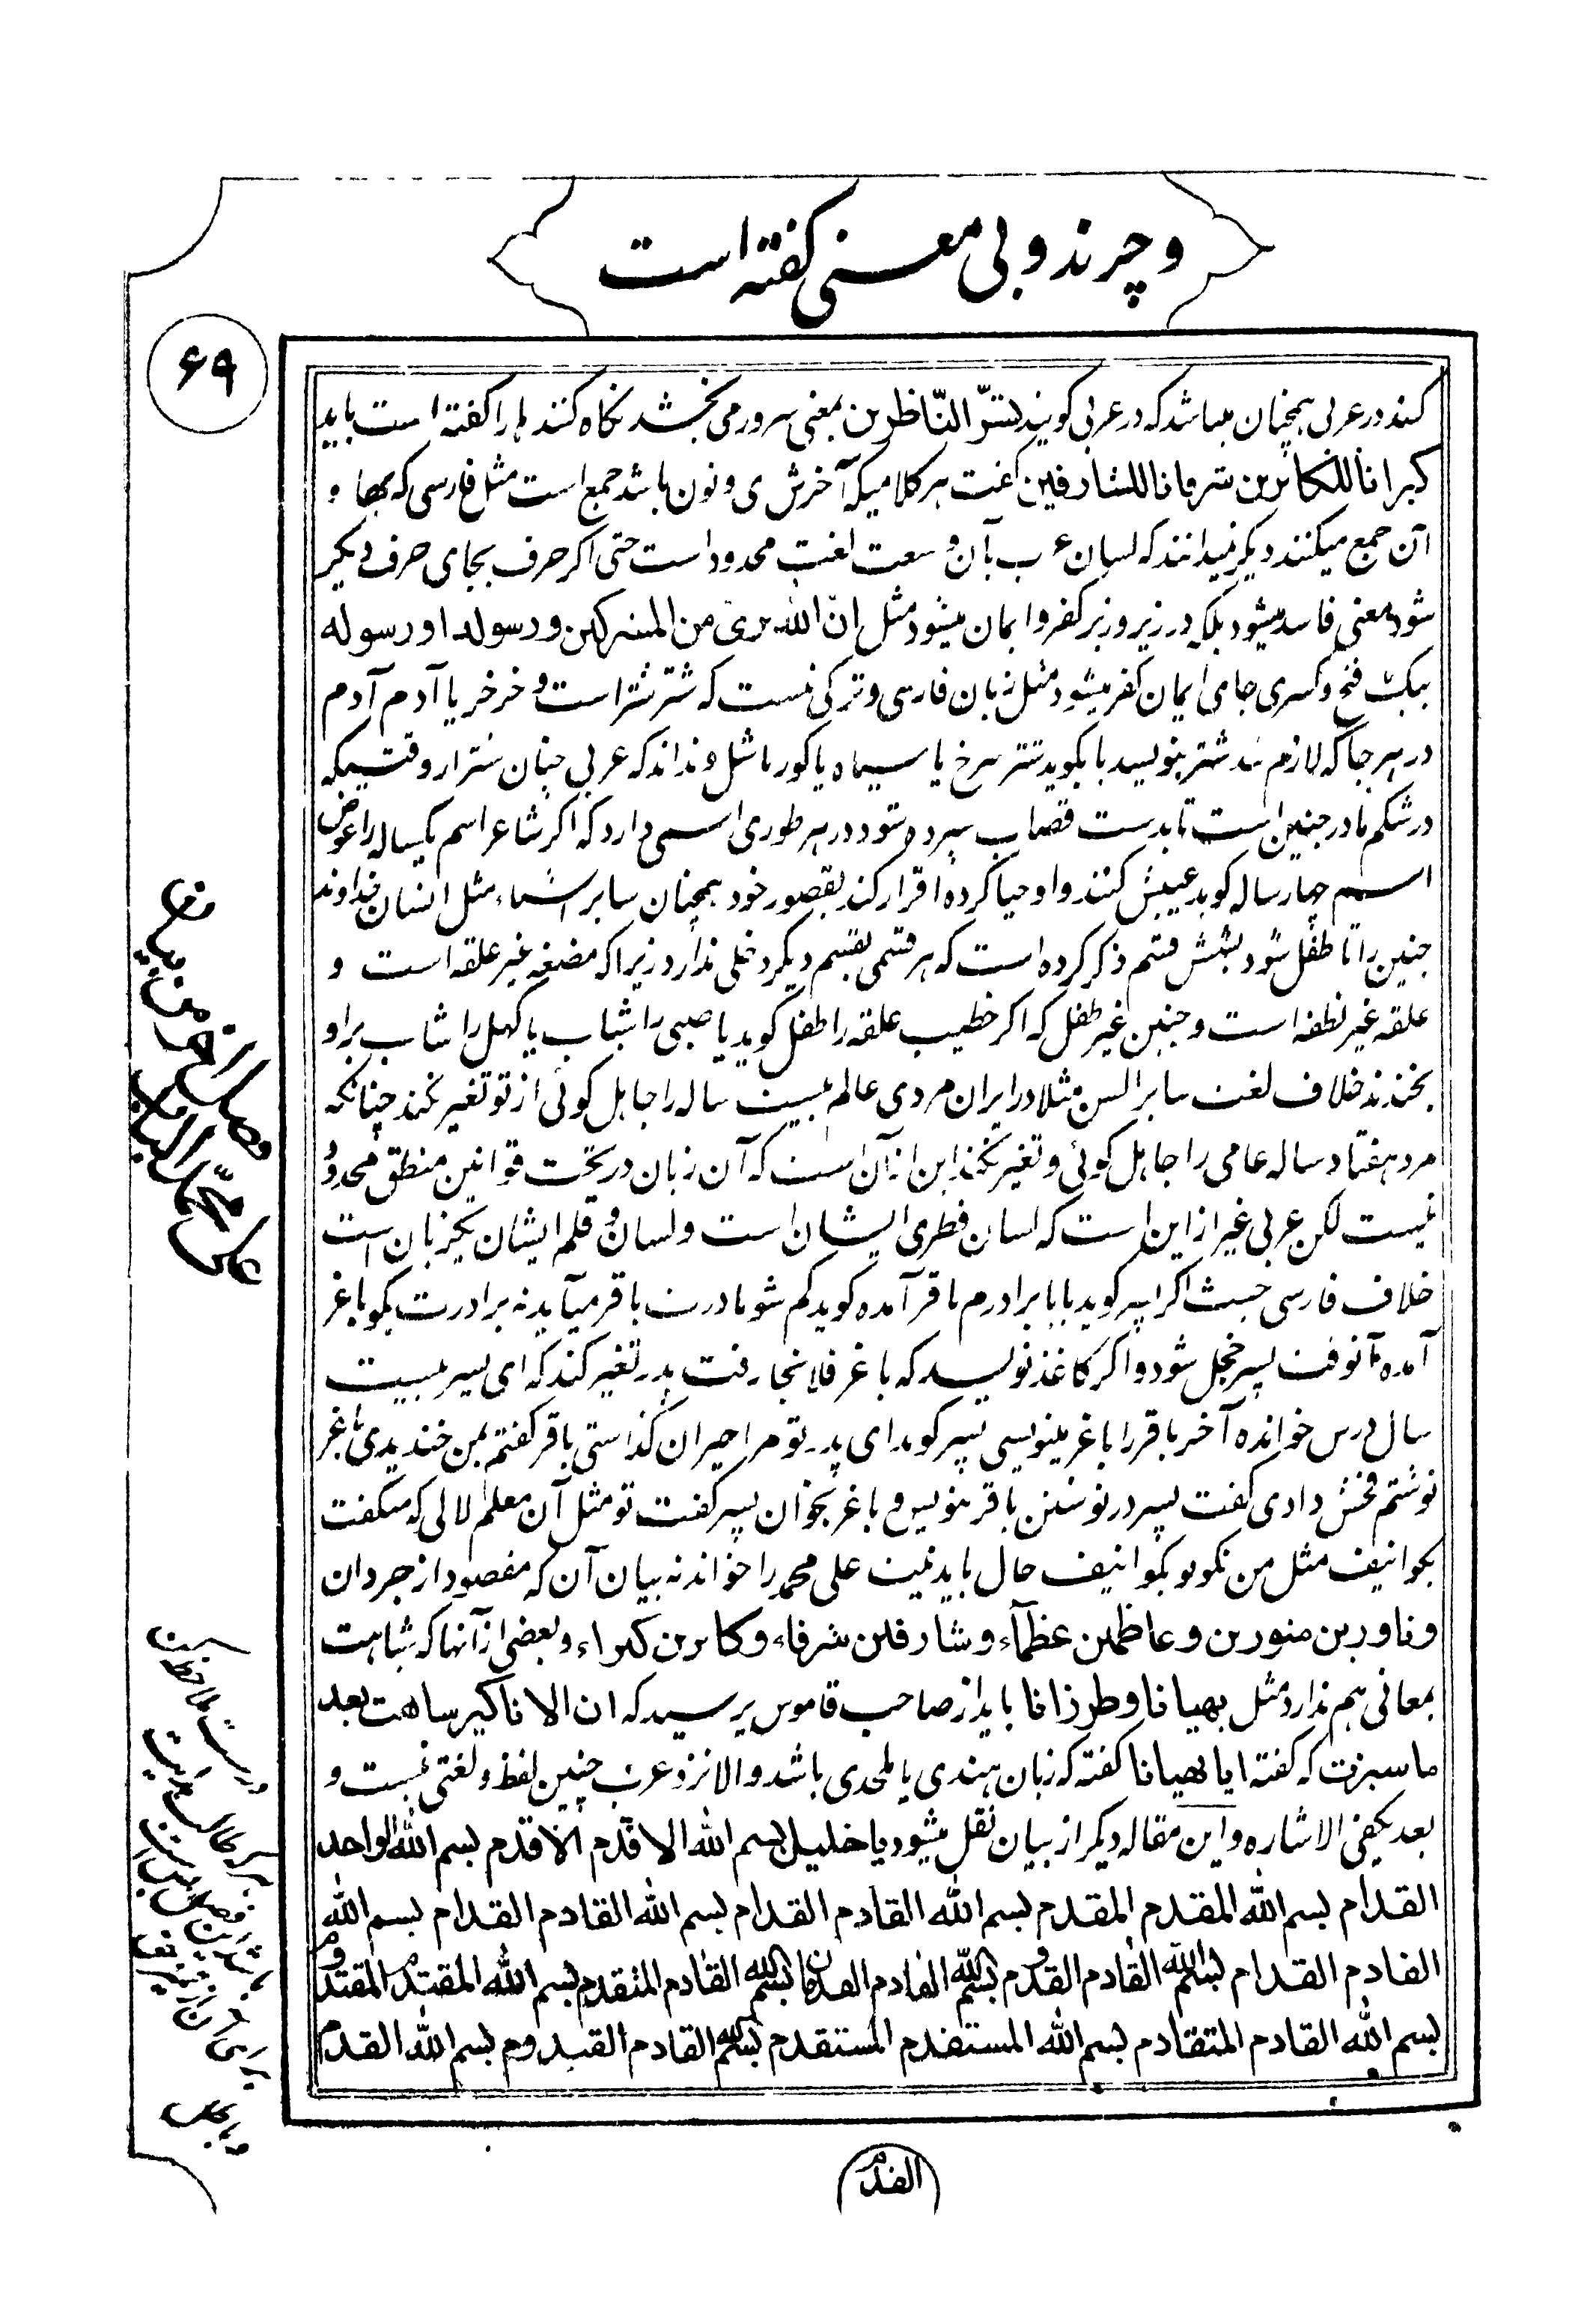 و چرند و بی معنی کفته است
۶۹
کند در عربی همچنان میباشد که در عربی کویند تسرّ النّاظرین بمعنی سرور می بخشد نکاه کنند ها را کفته است باید
کبرانا للکابرین شرفانا للشارفین هر کلامیکه آخرش ی و نون باشد جمع است مثل فارسی که بها و
آن جمع میکنند دیکر نمیدانند که لسان عرب بآن وسعت لغت محدود است حتی اکر حرف بجای حرف دیکر
شود معنی فاسد میشود بلکه در زیر و زبر کفر و ایمان میشود مثل انّ اللّه بریٔ من المشرکین و رسوله او رسوله
بیک فتح و کسری جای ایمان کفر میشود مثل زبان فارسی و ترکی نیست که شتر شتر است و خر خر یا آدم آدم
در هر جا که لازم شد شتر بنویسد یا بکوید شتر سرخ یا سیاه یا کور یا شل و نداند که عربی چنان شتر را از وقتیکه
در شکم مادر جنین است تا بدست قصاب سپرده شود در هر طوری اسمی دارد که اکر شاعر اسم یکساله را عوض
اسم چهار ساله کوید عیبش کنند و او حیا کرده اقرار کند بقصور خود همچنان سایر اشیاء مثل انسان خداوند
جنین را تا طفل شود بشش قسم ذکر کرده است که هر قسمی بقسم دیکر دخلی ندارد زیرا که مضغه غیر علقه است و
علقه غیر نطفه است و جنین غیر طفل که اکر خطیب علقه را طفل کوید یا صبی را شباب یا کهل را شاب بر او
بخندند خلاف لغت سایر السن مثلا در ایران مردی عالم بیست ساله را جاهل کوئی از تو تغیر نکند چنانکه
مرد هفتاد ساله عامی را جاهل کوئی و تغیر نکند این از آن است که آن زبان در تحت قوانین منطق محدود
نیست لکن عربی غیر از این است که لسان فطری ایشان است و لسان و قلم ایشان یکزبان است
خلاف فارسی حیث اکر پسر کوید بابا برادرم باقر آمده کوید کم شو مادرت باقر میآید نه برادرت بکو باغر
آمده تآنوقت پسر خجل شود و اکر کاغذ نویسد که باغر فلانجا رفت پدر تغیر کند که ای پسر بیست
سال درس خوانده آخر باقر را باغر مینویسی پسر کوید ای پدر تو مرا حیران کذاشتی باقر کفتم بمن خندیدی باغر
نوشتم فحش دادی کفت پسر در نوشتن باقر بنویس و باغر بخوان پسر کفت تو مثل آن معلم لالی که میکفت
بکو انیف مثل من نکو بو بکو انیف حال باید نیت علی محمد را خواند نه بیان آن که مقصود از جردان
و ناورین منورین و عاظمین عظمآء و شارفین شرفاء و کابرین کبراء و بعضی از آنها که شباهت
بمعانی هم ندارد مثل بهیانا و طرزانا باید از صاحب قاموس پرسید که ان الانا کیرساهت بعد
ما سبزت که کفته ایا بهیانا کفته که زبان هندی یا ملحدی باشد والا نزد عرب چنین لفظ و لغتی نیست و
بعد یکفی الاشاره و این مقاله دیکر از بیان نقل میشود یا خلیل بسم اللّه الاقدم الاقدم بسم اللّه الواحد
القدام بسم اللّه المقدم المقدم بسم اللّه القادم القدام بسم اللّه القادم القدام بسم اللّه
القادم القدام بسم اللّه القادم القدوم بسم اللّه القادم القدمان بسم اللّه القادم المتقدم بسم اللّه المقتدم المقتدم
بسم اللّه القادم المتقادم بسم اللّه المستقدم المستقدم بسم اللّه القادم القیدوم بسم اللّه القدم
القدم